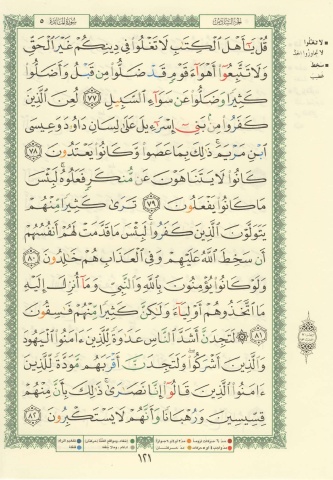 الجزء السادس
سورة المائدة ٥
قُلْ يَٰٓأَهْلَ ٱلْكِتَٰبِ لَا تَغْلُوا۟ فِى دِينِكُمْ غَيْرَ ٱلْحَقِّ
وَلَا تَتَّبِعُوٓا۟ أَهْوَآءَ قَوْمٍ قَدْ ضَلُّوا۟ مِن قَبْلُ وَأَضَلُّوا۟
كَثِيرًا وَضَلُّوا۟ عَن سَوَآءِ ٱلسَّبِيلِ ٧٧ لُعِنَ ٱلَّذِينَ
كَفَرُوا۟ مِنۢ بَنِىٓ إِسْرَٰٓءِيلَ عَلَىٰ لِسَانِ دَاوُۥدَ وَعِيسَى
ٱبْنِ مَرْيَمَ ذَٰلِكَ بِمَا عَصَوا۟ وَّكَانُوا۟ يَعْتَدُونَ ٧٨
كَانُوا۟ لَا يَتَنَاهَوْنَ عَن مُّنكَرٍ فَعَلُوهُ لَبِئْسَ
مَا كَانُوا۟ يَفْعَلُونَ ٧٩ تَرَىٰ كَثِيرًا مِّنْهُمْ
يَتَوَلَّوْنَ ٱلَّذِينَ كَفَرُوا۟ لَبِئْسَ مَا قَدَّمَتْ لَهُمْ أَنفُسُهُمْ
أَن سَخِطَ ٱللَّهُ عَلَيْهِمْ وَفِى ٱلْعَذَابِ هُمْ خَٰلِدُونَ ٨٠
وَلَوْ كَانُوا۟ يُؤْمِنُونَ بِٱللَّهِ وَٱلنَّبِىِّ وَمَآ أُنزِلَ إِلَيْهِ
مَا ٱتَّخَذُوهُمْ أَوْلِيَآءَ وَلَٰكِنَّ كَثِيرًا مِّنْهُمْ فَٰسِقُونَ ٨١
لَتَجِدَنَّ أَشَدَّ ٱلنَّاسِ عَدَٰوَةً لِّلَّذِينَ ءَامَنُوا۟ ٱلْيَهُودَ
وَٱلَّذِينَ أَشْرَكُوا۟ وَلَتَجِدَنَّ أَقْرَبَهُم مَّوَدَّةً لِّلَّذِينَ
ءَامَنُوا۟ ٱلَّذِينَ قَالُوٓا۟ إِنَّا نَصَٰرَىٰ ذَٰلِكَ بِأَنَّ مِنْهُمْ
قِسِّيسِينَ وَرُهْبَانًا وَأَنَّهُمْ لَا يَسْتَكْبِرُونَ ٨٢
١٢١
لا تغلوا
لا تجاوزوا الحد
سخط
غضب